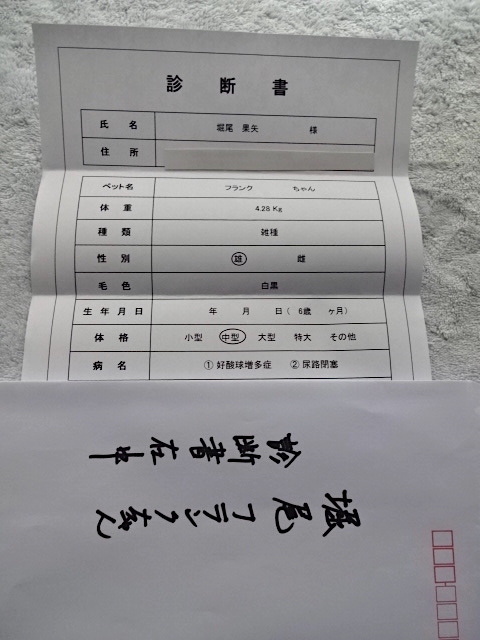 診断書
氏名 堀尾 果矢 様
住所
ペット名 フランク ちゃん
体重 4.28 Kg
種類 雑種
性別 雄 雌
毛色 白黒
生年月日 年 月 日 ( 6歳 ヶ月)
体格 小型 中型 大型 特大 その他
病名 ① 好酸球増多症 ② 尿路閉塞
診断書在中
堀尾フランクちゃん